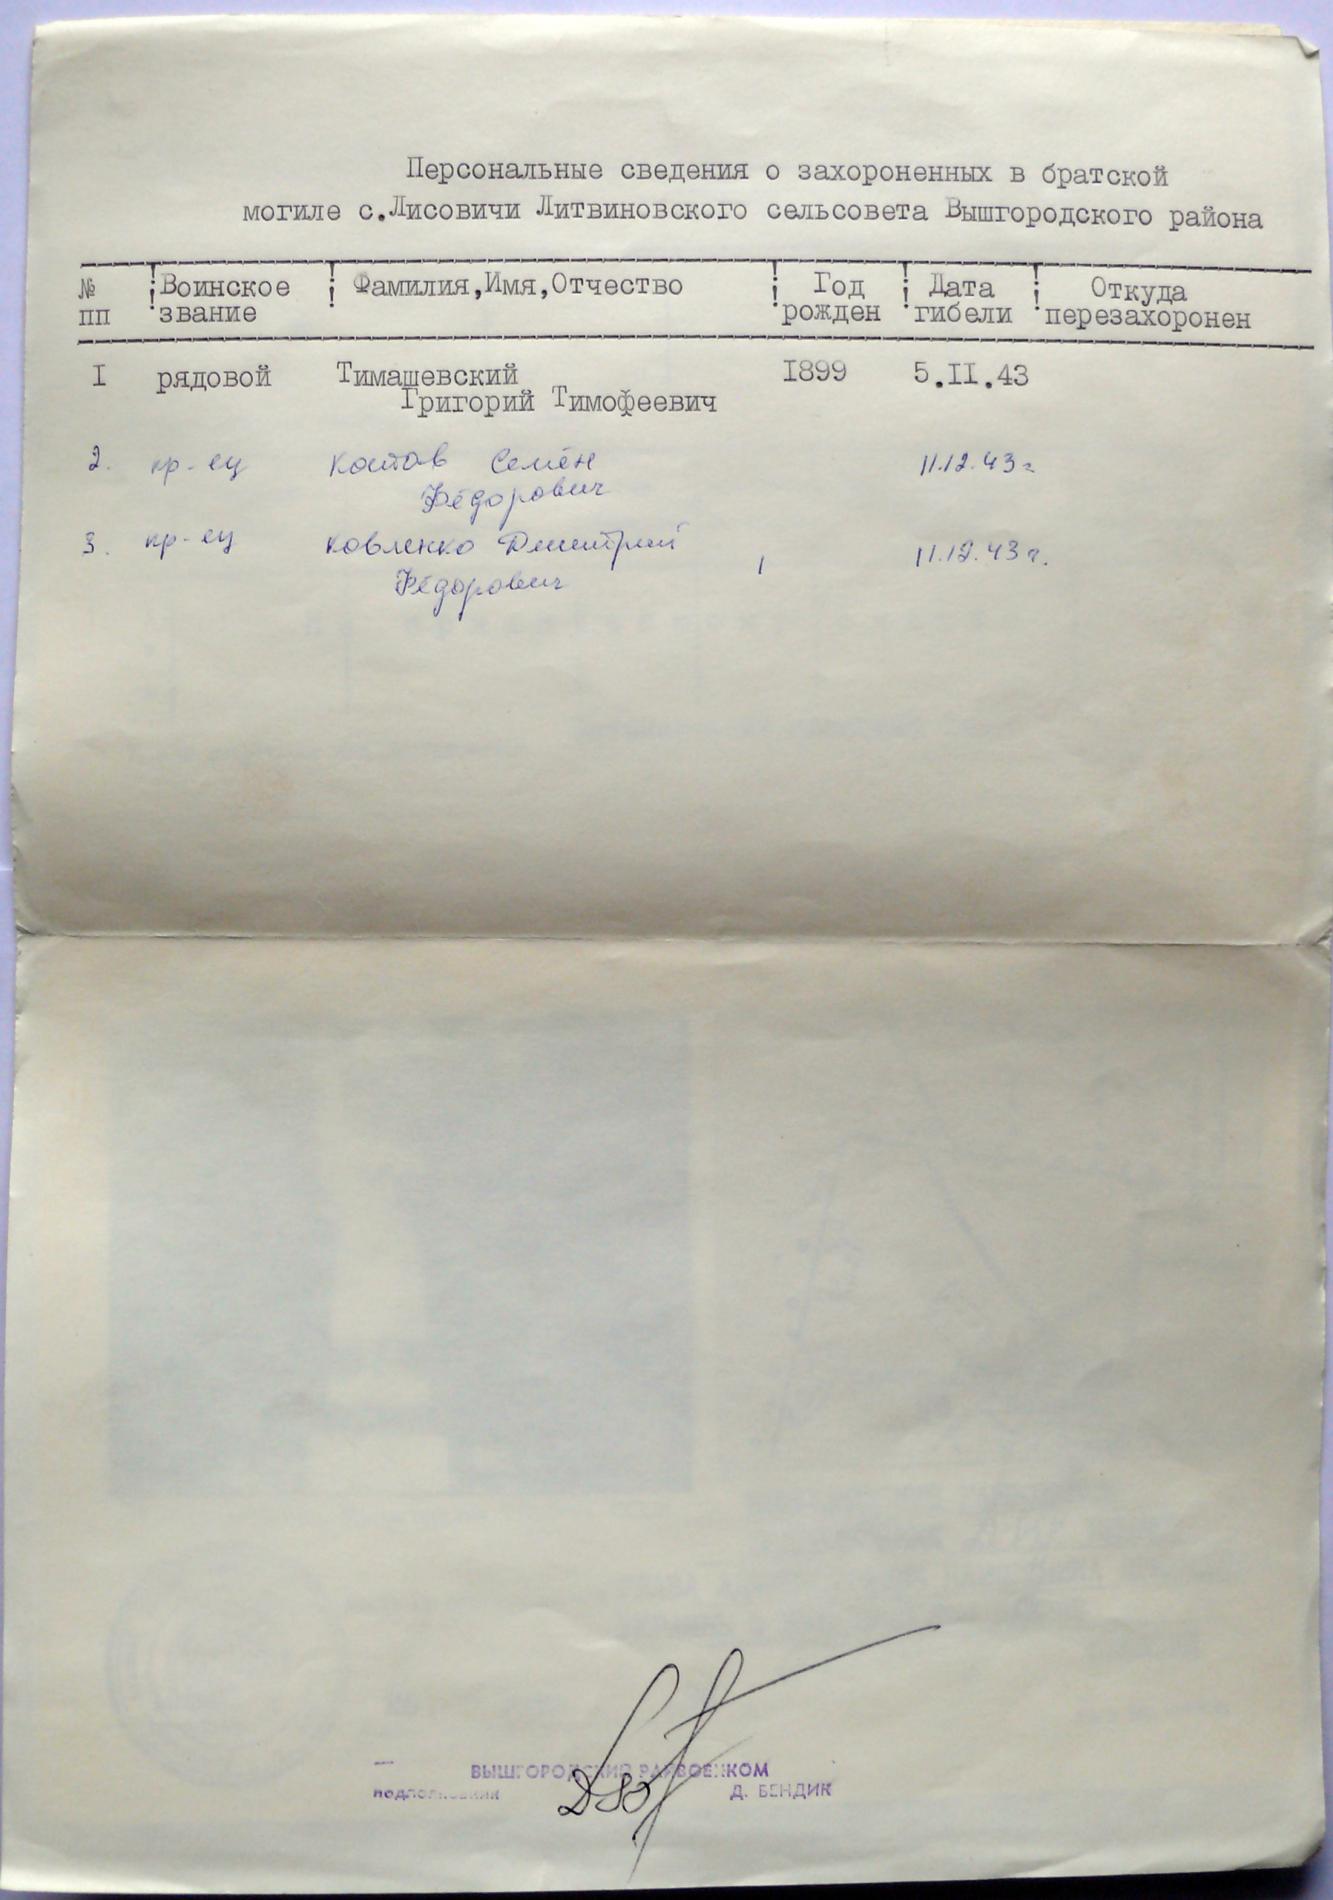 Персональные сведения о захороненных в братской
могиле с.Лисовичи Литвиновского сельсовета Вышгородского района
№ пп ! Воинское звание ! Фамилия,Имя,Отчество ! Год рожден ! Дата гибели ! Откуда перезахоронен
I рядовой Тимашевский 1899 5.II.43
Григорий Тимофеевич
2. кр-ец Костов Семён 11.12.43г
Фёдорович
3. кр-ец Ковленко Дмитрий 11.12.43г.
Фёдорович
ВЫШГОРОДСКИЙ РАЙВОЕНКОМ
подполковник Д. БЕНДИК